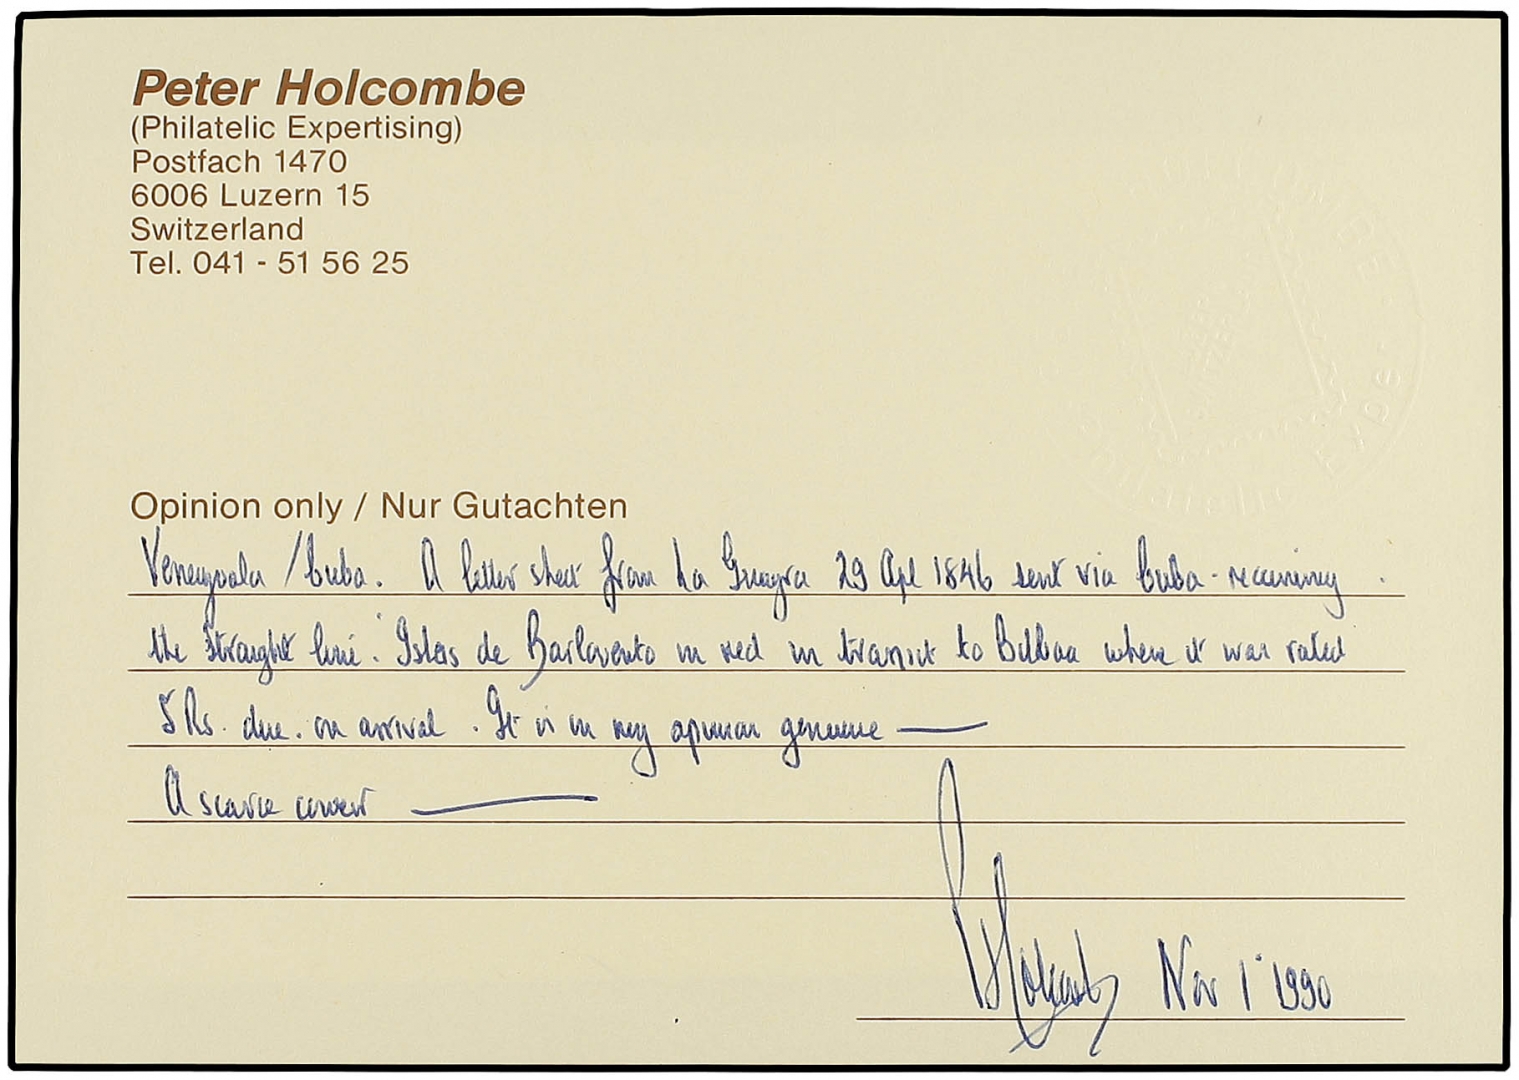 Peter Holcombe
(Philatelic Expertising)
Postfach 1470
6006 Luzern 15
Switzerland
Tel. 041 - 51 56 25
Opinion only / Nur Gutachten
Venezuela / Cuba. A letter sheet from La Guayra 29 Apl 1846 sent via Cuba - receiving
the straight line "Islas de Barlovento in red in transit to Bilbao where it was rated
5 Rs. due. on arrival. It is in my opinion genuine —
A scarce cover —
PHolcombe Nov 1 1990